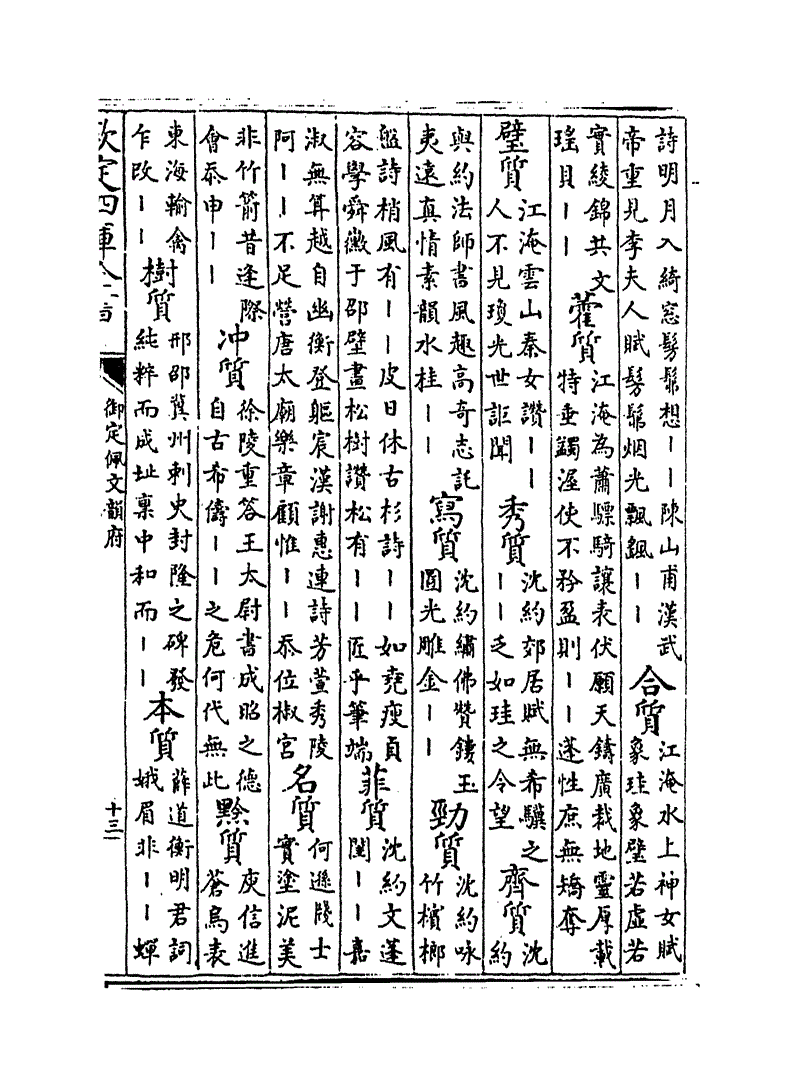 詩明月入綺窓髣髴想丨丨陳山甫漢武
帝重見李夫人賦髣髴烟光飄颻丨丨
合質
江淹水上神女賦
象珪象璧若虛若
實綾錦共文
瑤貝丨丨
藿質
江淹為蕭驃騎讓表伏願天鑄廣裁地靈厚載
特垂蠲渥使不矜盈則丨丨蓬性庶無矯奪
璧質
江淹雲山秦女讚丨丨
人不見瓊光世詎聞
秀質
沈約郊居賦無希驥之
丨丨乏如珪之令望
齊質
沈
約
與約法師書風趣高奇志託
夷遠真情素韻水桂丨丨
寫質
沈約繡佛贊鏤玉
圓光雕金丨丨
勁質
沈約咏
竹檳榔
盤詩梢風有丨丨皮日休古杉詩丨丨如堯瘦貞
容學舜黴于邵璧畫松樹讚松有丨丨匠乎筆端
菲質
沈約文蓬
閨丨丨嘉
淑無算越自幽衡登軀宸漢謝惠連詩芳萱秀陵
阿丨丨不足營唐太廟樂章顧惟丨丨忝位椒宮
名質
何遜牋士
實塗泥美
非竹箭昔逢際
會忝申丨丨
冲質
徐陵重答王太尉書成昭之德
自古希儔丨丨之危何代無此
黔質
庾信進
蒼烏表
東海輸禽
乍改丨丨
樹質
邢邵冀州刺史封隆之碑發
純粹而成址稟中和而丨丨
本質
薛道衡明君詞
娥眉非丨丨蟬
欽定四庫全書
御定佩文韻府
十三